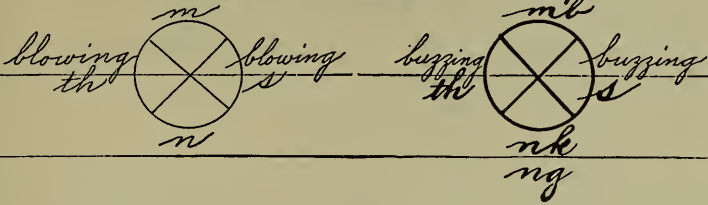 m
blowing th
blowing s
n
mb
buzzing th
buzzing s
nk
ng